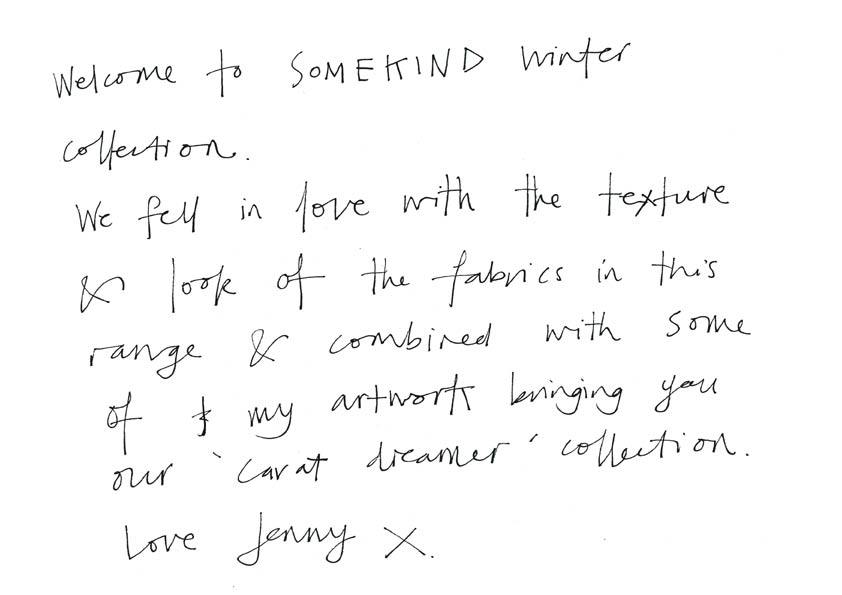 Welcome to SOMEKIND Winter
collection.
We fell in love with the texture
& look of the fabrics in this
range & combined with some
of my artwork bringing you
our 'carat dreamer' collection.
Love Jenny X.